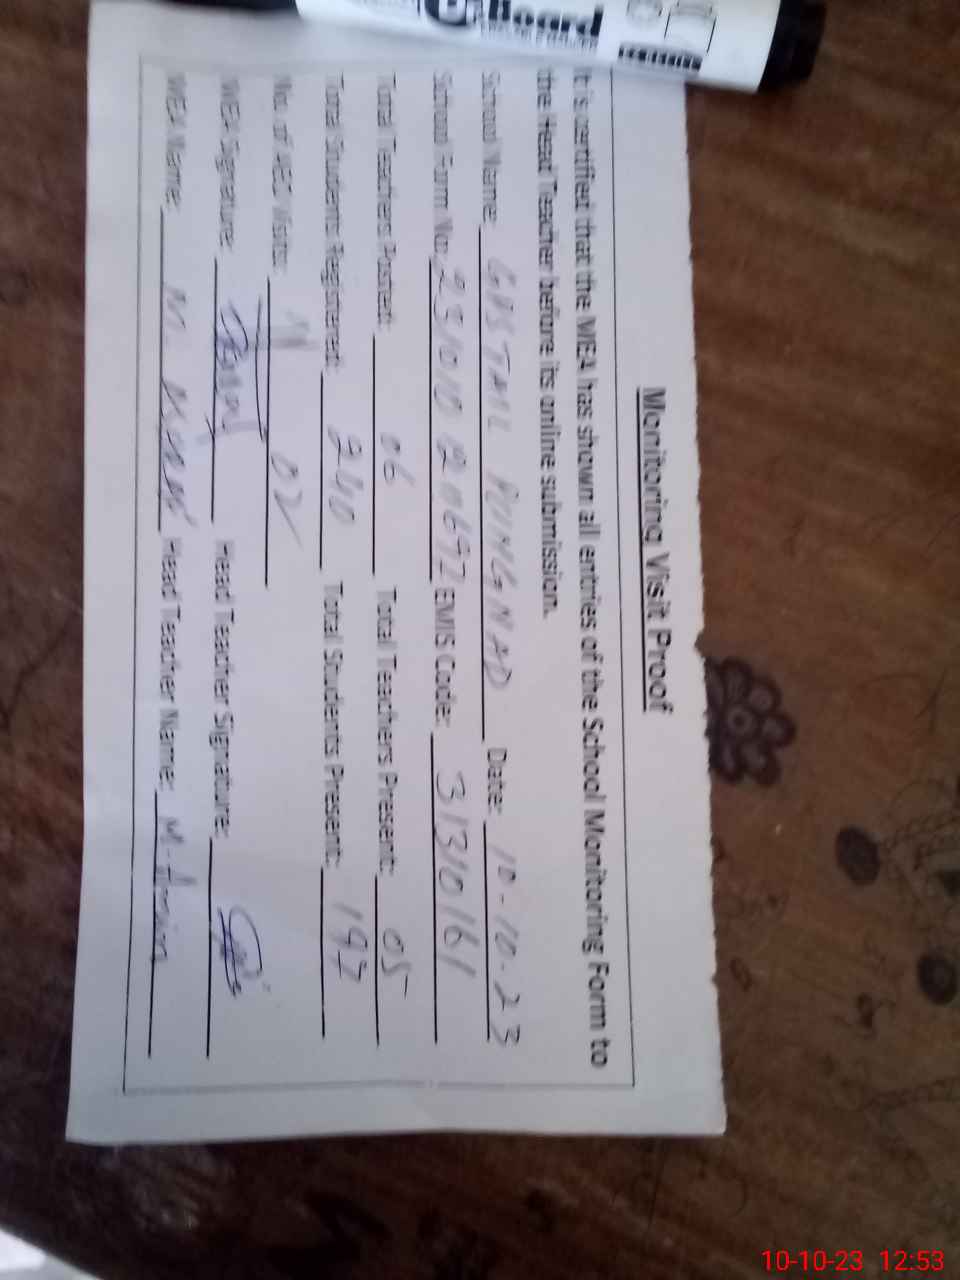 Board
Monitoring Visit Proof
It is certified that the MEA has shown all entries of the School Monitoring Form to
the Head Teacher before its online submission.
School Name: GPS TALL Date: 10-10-23
School Form No: EMIS Code: 31310161
Total Teachers Posted: 06 Total Teachers Present: 05
Total Students Registered: 240 Total Students Present: 197
No. of AEO Visits: 02
MEA Signature: Head Teacher Signature:
MEA Name: M. Head Teacher Name: M.
10-10-23 12:53